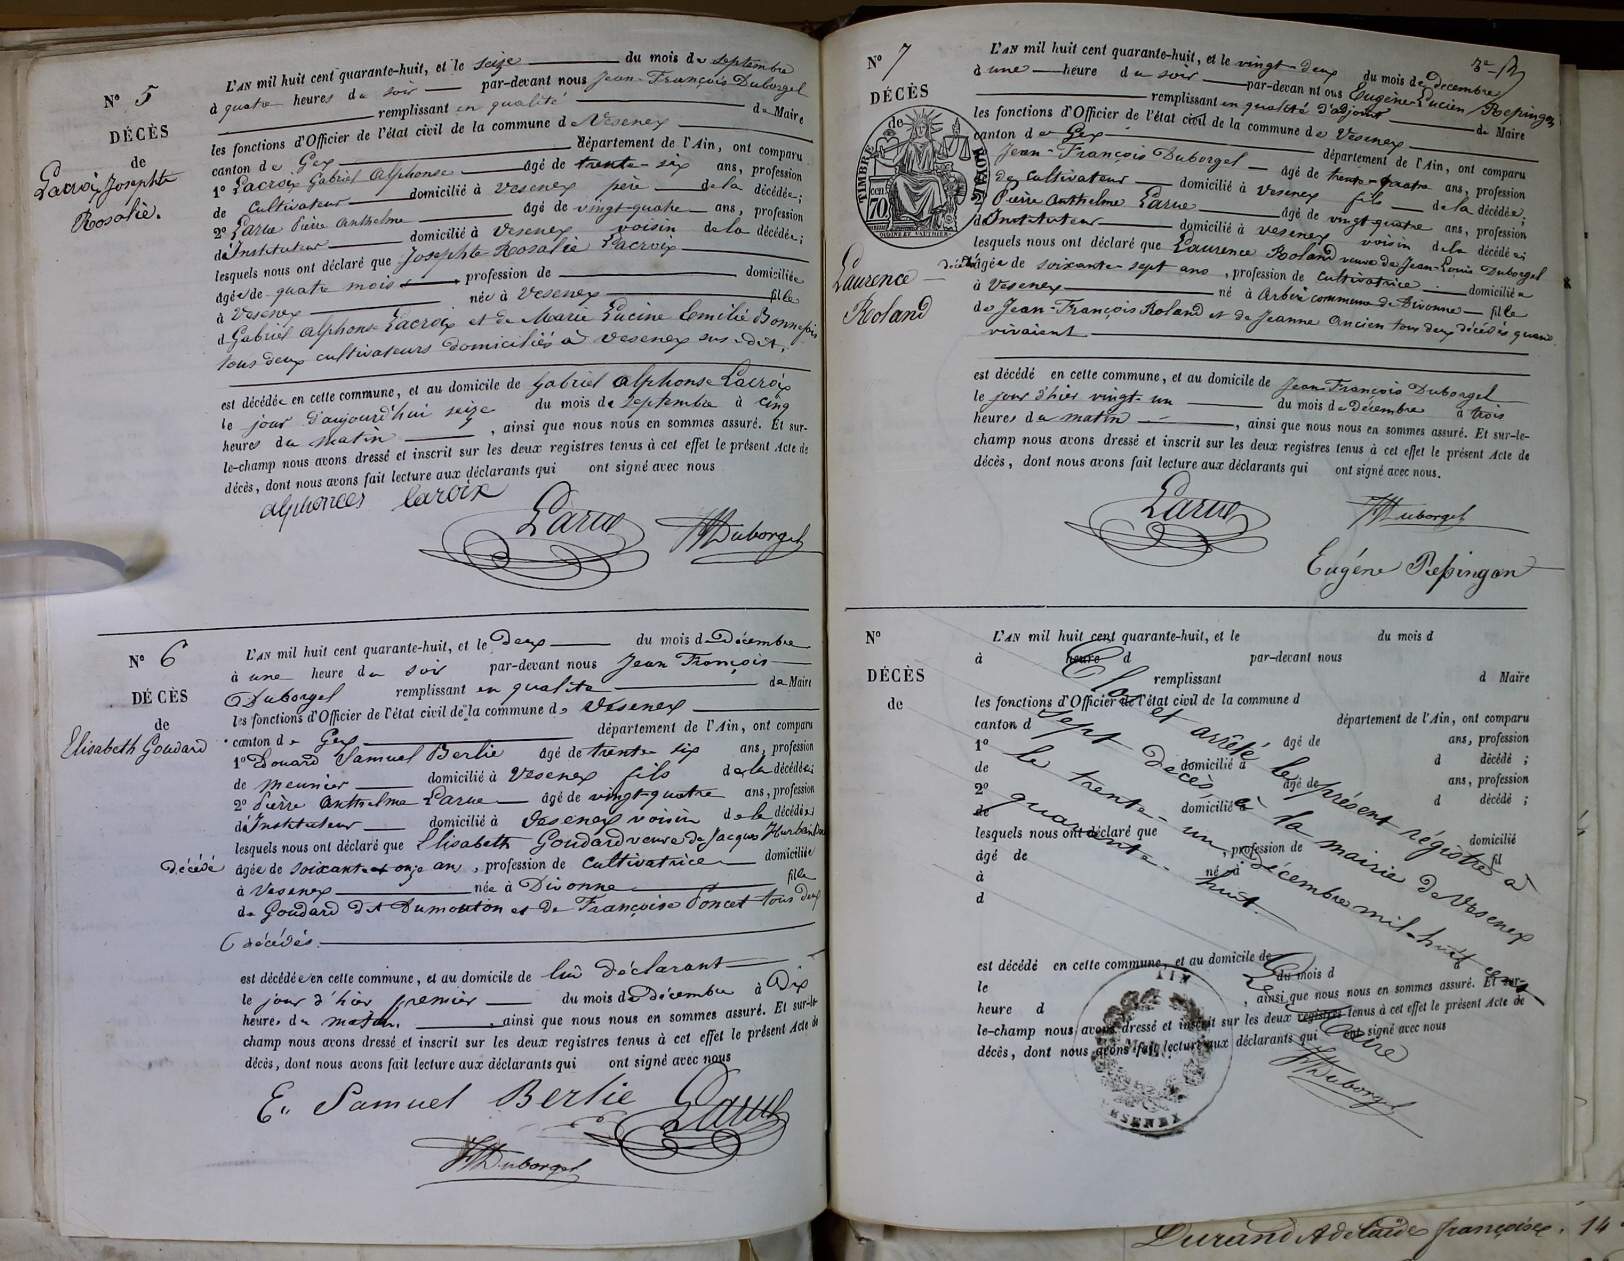 N° 5
DÉCÈS
de
Lacroix Josephte
Rosalie.
L'AN mil huit cent quarante-huit, et le seize du mois de septembre
à quatre heures du soir par-devant nous Jean-François Duborgel
remplissant en qualité de Maire
les fonctions d'Officier de l'état civil de la commune de Vesenex
canton de Gex département de l'Ain, ont comparu
1° Lacroix Gabriel Alphonse âgé de trente-six ans, profession
de cultivateur domicilié à Vesenex père de la décédée;
2° Larue Pierre Anthelme âgé de vingt-quatre ans, profession
d'Instituteur domicilié à Vesenex voisin de la décédée;
lesquels nous ont déclaré que Josephte Rosalie Lacroix
âgée de quatre mois profession de domiciliée
à Vesenex née à Vesenex fille
d Gabriel Alphonse Lacroix et de Marie Lucine Emilie Bonnefois
tous deux cultivateurs domiciliés à Vesenex sus-dit.
est décédée en cette commune, et au domicile de Gabriel Alphonse Lacroix
le jour d'aujourd'hui seize du mois de septembre à cinq
heures du matin, ainsi que nous nous en sommes assuré. Et sur-
le-champ nous avons dressé et inscrit sur les deux registres tenus à cet effet le présent Acte de
décès, dont nous avons fait lecture aux déclarants qui ont signé avec nous
alphonces laroix
Larue
Duborgel
N° 6
DÉCÈS
de
Elisabeth Goudard
L'AN mil huit cent quarante-huit, et le deux du mois de Décembre
à une heure du soir par-devant nous Jean François
Duborgel remplissant en qualité de Maire
les fonctions d'Officier de l'état civil de la commune de Vesenex
canton de Gex département de l'Ain, ont comparu
1° Edouard Samuel Berlie âgé de trente six ans, profession
de meunier domicilié à Vesenex fils de la décédée;
2° Pierre Anthelme Larue âgé de vingt-quatre ans, profession
d'Instituteur domicilié à Vesenex voisin de la décédée;
lesquels nous ont déclaré que Elisabeth Goudard veuve de Jacques
décédé âgée de soixante et onze ans, profession de cultivatrice domiciliée
à Vesenex née à Divonne fille
de Goudard dit Dumouton et de Françoise Poncet tous deux
décédés.
est décédée en cette commune, et au domicile de lui déclarant
le jour d'hier premier du mois de décembre à Dix
heures du matin, ainsi que nous nous en sommes assuré. Et sur-le-
champ nous avons dressé et inscrit sur les deux registres tenus à cet effet le présent Acte de
décès, dont nous avons fait lecture aux déclarants qui ont signé avec nous
E. Samuel Berlie Larue
Duborgel
N° 7
DÉCÈS
de
TIMBRE ROYAL
70
Laurence
Roland
L'AN mil huit cent quarante-huit, et le vingt-deux du mois de Décembre
à une heure du soir par-devan nt ous Eugène-Lucien Repingon
remplissant en qualité d'adjoint de Maire
les fonctions d'Officier de l'état civil de la commune de Vesenex
canton de Gex département de l'Ain, ont comparu
Jean-François Duborgel âgé de trente-quatre ans, profession
de cultivateur domicilié à Vesenex fils de la décédée;
2° Pierre Anthelme Larue âgé de vingt quatre ans, profession
d'Instituteur domicilié à Vesenex voisin de la décédée;
lesquels nous ont déclaré que Laurence Roland veuve de Jean-Louis Duborgel
âgée de soixante-sept ans, profession de cultivatrice domiciliée
à Vesenex né à Arbère commune de Divonne fille
de Jean-François Roland et de Jeanne Ancien tous deux décédés quand
vivaient
est décédé en cette commune, et au domicile de Jean-François Duborgel
le jour d'hier vingt-un du mois de décembre à trois
heures du matin, ainsi que nous nous en sommes assuré. Et sur-le-
champ nous avons dressé et inscrit sur les deux registres tenus à cet effet le présent Acte de
décès, dont nous avons fait lecture aux déclarants qui ont signé avec nous.
Larue
Duborgel
Eugéne Repingon
N°
DÉCÈS
de
L'AN mil huit cent quarante-huit, et le du mois d
à heure d par-devant nous
remplissant d Maire
les fonctions d'Officier de l'état civil de la commune d
canton d département de l'Ain, ont comparu
1° âgé de ans, profession
de domicilié à d décédé;
2° âgé de ans, profession
de domicilié d décédé;
lesquels nous ont déclaré que domicilié
âgé de , profession de fil
à né à
d
est décédé en cette commune, et au domicile de
le du mois d
heure d , ainsi que nous nous en sommes assuré. Et sur-
le-champ nous avons dressé et inscrit sur les deux registres tenus à cet effet le présent Acte de
décès, dont nous avons fait lecture aux déclarants qui ont signé avec nous
Clos et arrêté le présent régistre à
sept décès à la mairie de Vesenex
le trente-un décembre mil-huit cent
quarante-huit.
Le Maire
Duborgel
AIN
VESENEX
Durand Adelaide françoise. 14